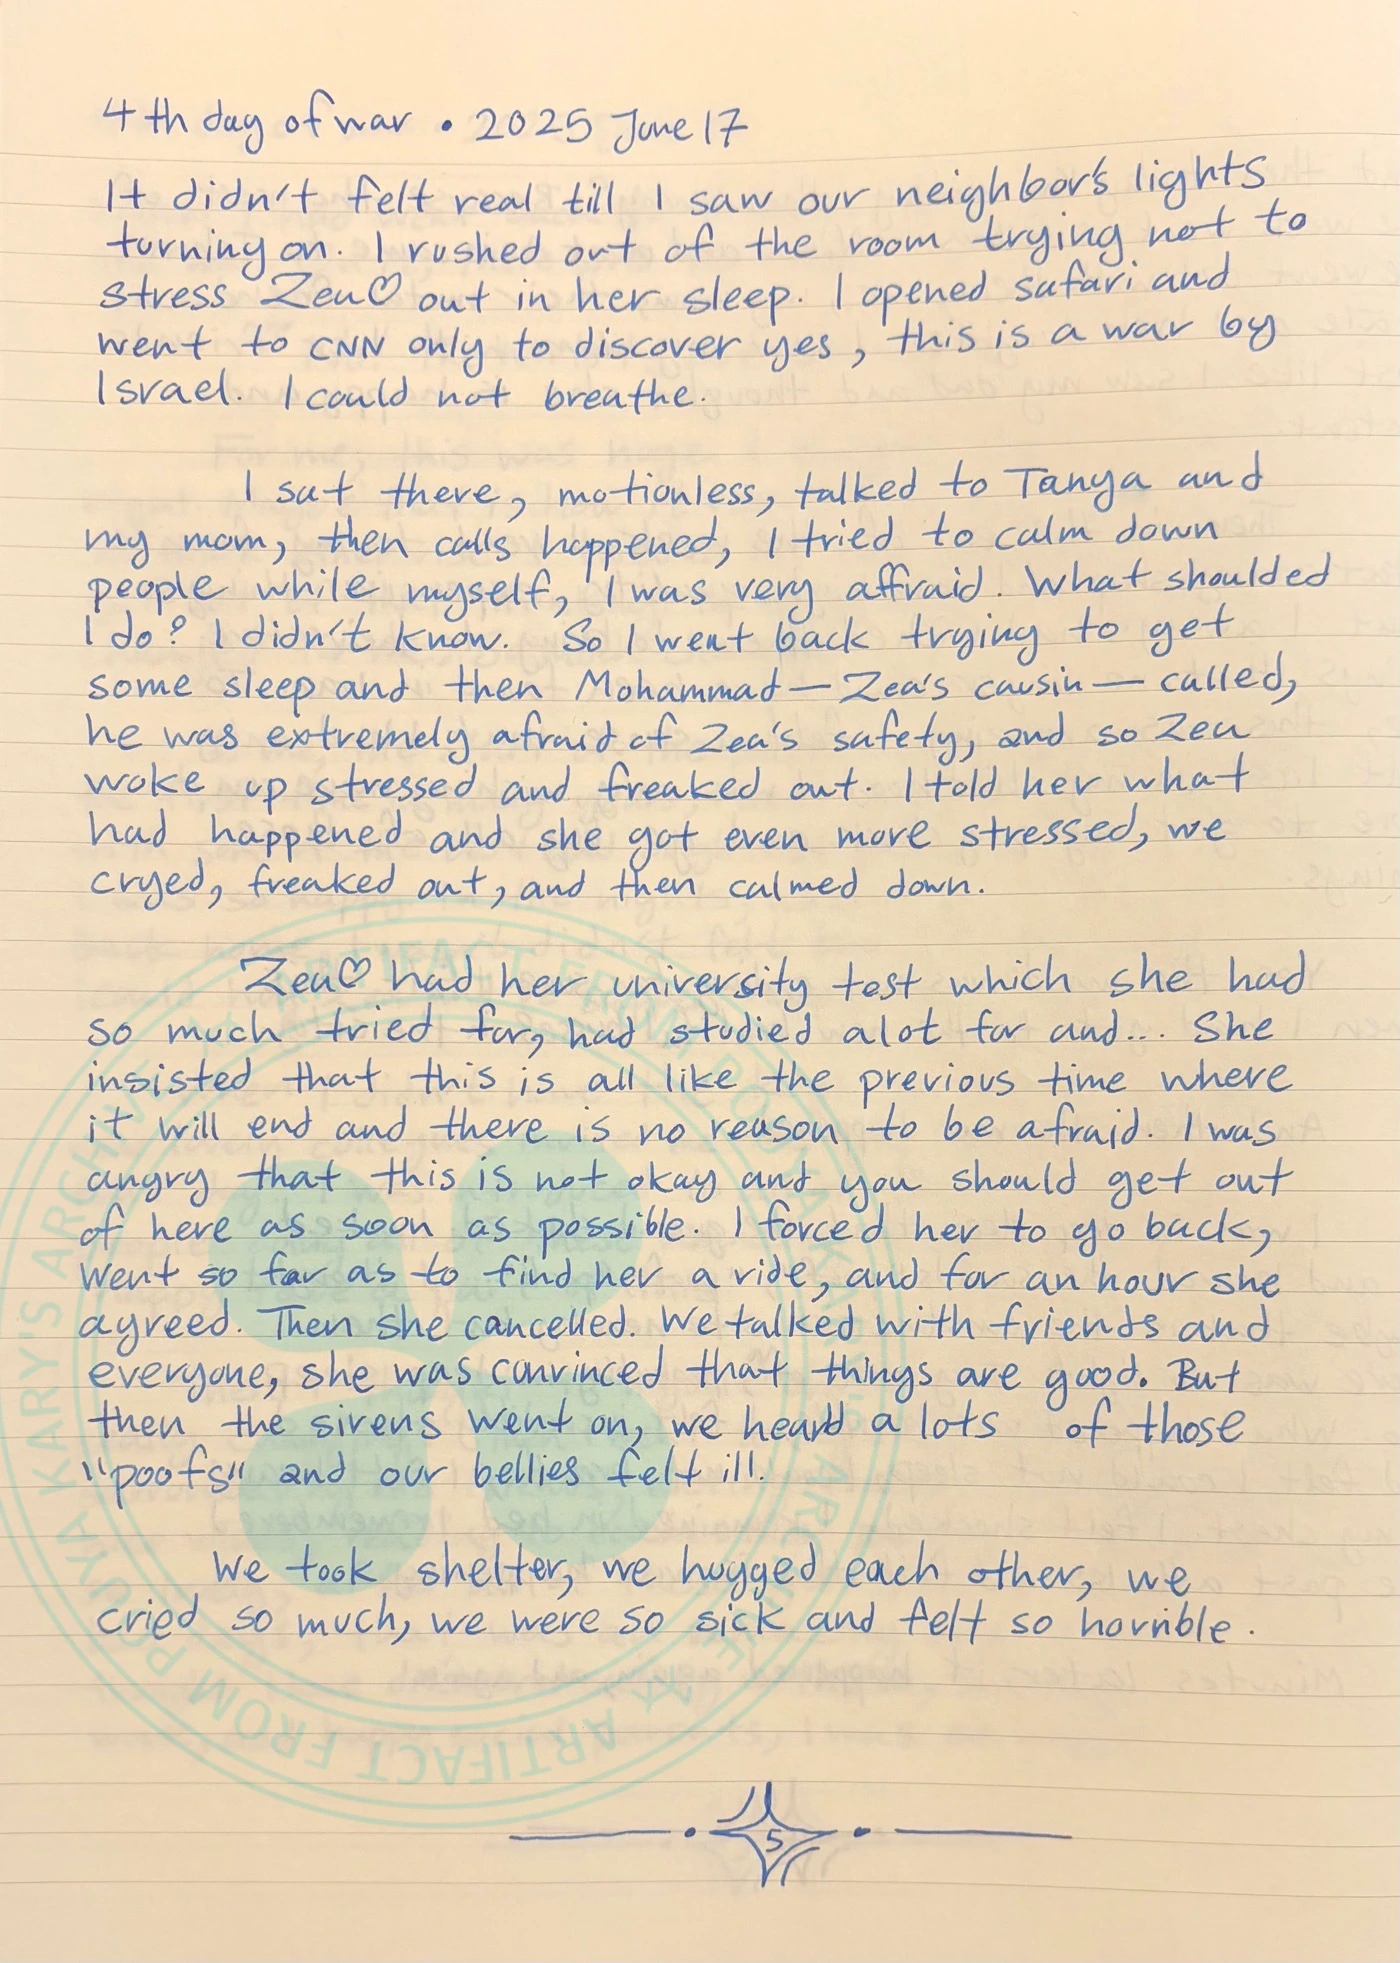 4th day of war • 2025 June 17
It didn't felt real till I saw our neighbor's lights
turning on. I rushed out of the room trying not to
stress Zea♡ out in her sleep. I opened safari and
went to CNN only to discover yes, this is a war by
Israel. I could not breathe.
I sat there, motionless, talked to Tanya and
my mom, then calls happened, I tried to calm down
people while myself, I was very affraid. What shoulded
I do? I didn't know. So I went back trying to get
some sleep and then Mohammad — Zea's causin — called,
he was extremely afraid of Zea's safety, and so Zea
woke up stressed and freaked out. I told her what
had happened and she got even more stressed, we
cryed, freaked out, and then calmed down.
Zea♡ had her university test which she had
so much tried for, had studied alot for and... She
insisted that this is all like the previous time where
it will end and there is no reason to be afraid. I was
angry that this is not okay and you should get out
of here as soon as possible. I forced her to go back,
went so far as to find her a ride, and for an hour she
agreed. Then she cancelled. We talked with friends and
everyone, she was convinced that things are good. But
then the sirens went on, we heard a lots of those
"poofs" and our bellies felt ill.
We took shelter, we hugged each other, we
cried so much, we were so sick and felt so horrible.
5
ARTIFACT FROM POUYA KARY'S ARCHIVE